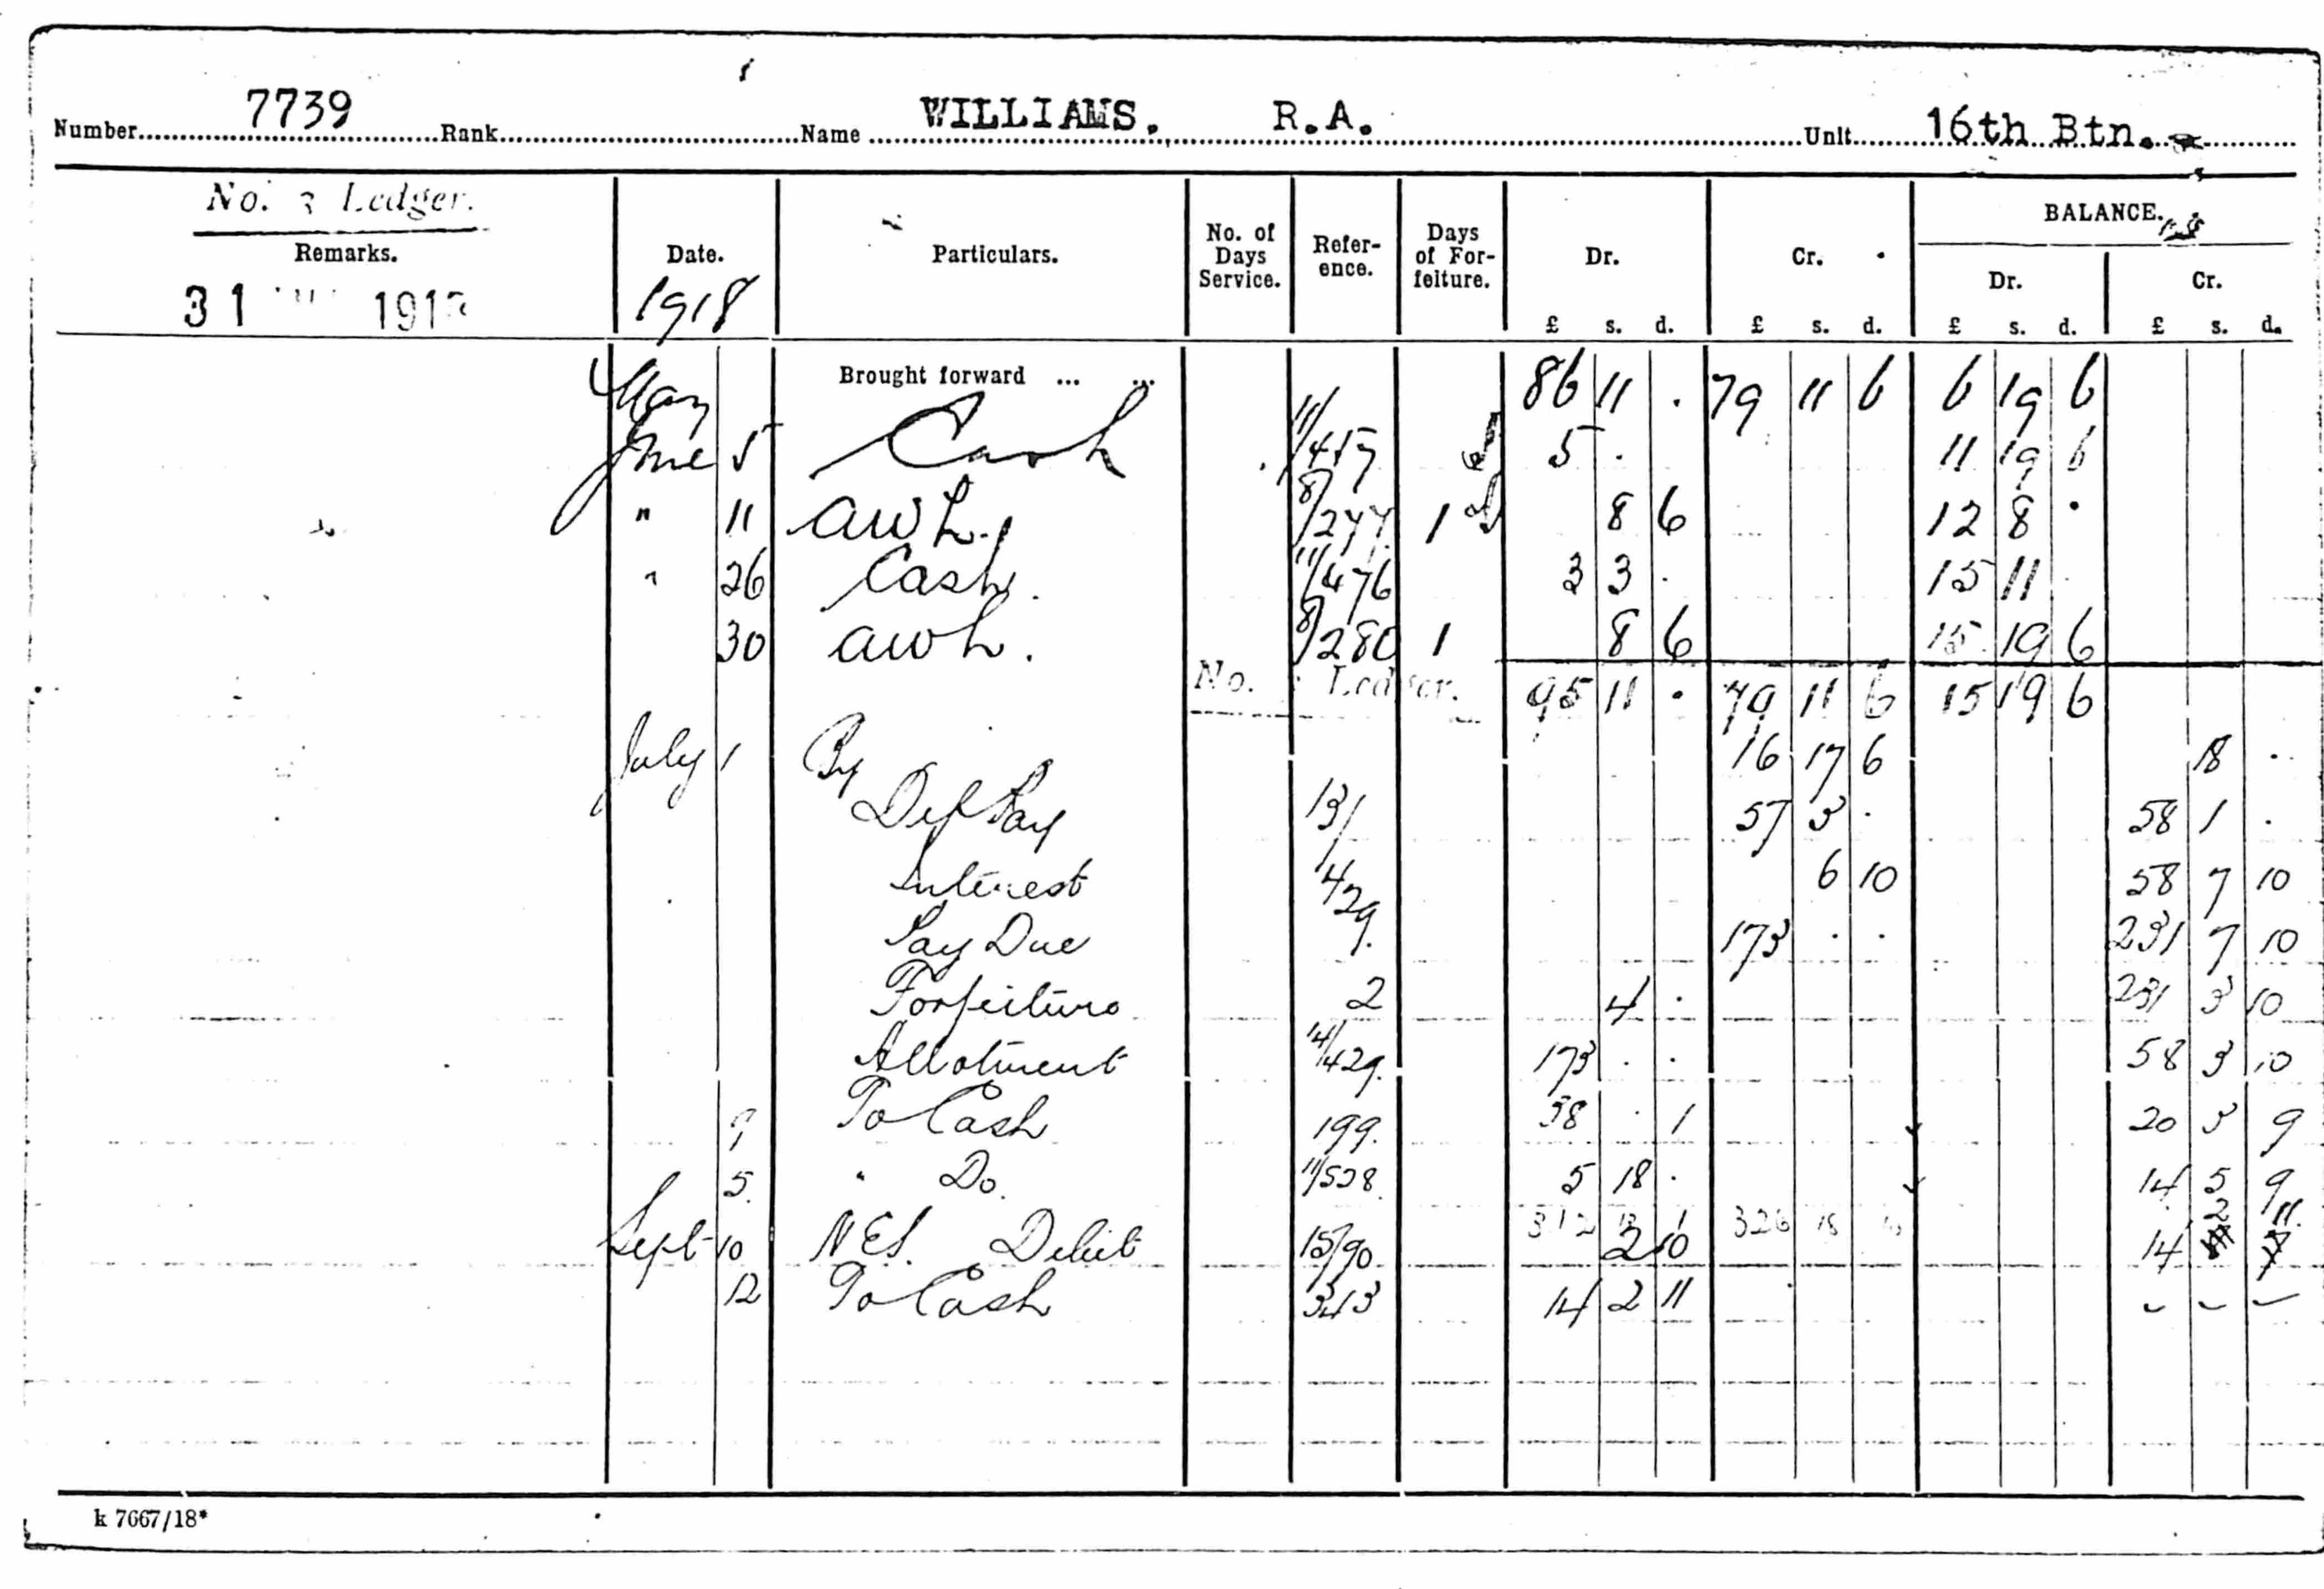 Number 7739 Rank Name WILLIAMS. R.A. Unit 16th Btn.
No. 3 Ledger.
Remarks. Date. Particulars. No. of Days Service. Reference. Days of Forfeiture. Dr. Cr. BALANCE. Dr. Cr.
31 191 1918 £ s. d. £ s. d. £ s. d. £ s. d.
May Brought forward ... ... 86 11 . 79 11 6 6 19 6
June 5 Cash 11/457 5 . 11 19 6
" 11 AWL. 8/277 1 8 6 12 8 .
" 26 Cash. 11/476 3 3 . 15 11 .
30 AWL. 8/280 1 8 6 15 19 6
No. Ledger. 95 11 . 79 11 6 15 19 6
July 1 By 16 17 6 18 .
Def Pay 13/ 57 3 . 58 1 .
Interest 1/429. 6 10 58 7 10
Pay Due 173 . . 231 7 10
Forfeiture 2 4 . 231 3 10
Allotment 14/429. 173 . . 58 3 10
9 To Cash 199. 38 . 1 20 3 9
5. " Do. 11/528. 5 18 . 14 5 9
312 13 1 326 18 10 2 11.
Sept 10 NES. Debit 15/90 2 10 14
12 To Cash 343 14 2 11 - - -
k 7667/18*